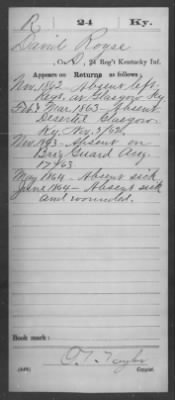 R 24 Ky.
David Royse
, Co. D, 24 Reg't Kentucky Inf.
Appears on Returns as follows:
Nov. 1862 Absent left
Regt. at Glasgow Ky
Feb. & Mar. 1863 - Absent
Deserted Glasgow
Ky. Nov. 5/62.
Nov. 1863 - Absent on
Brig Guard Aug.
17/63.
May 1864 - Absent sick
June 1864 - Absent sick
and wounded.
Book mark:
(546)
Copyist.